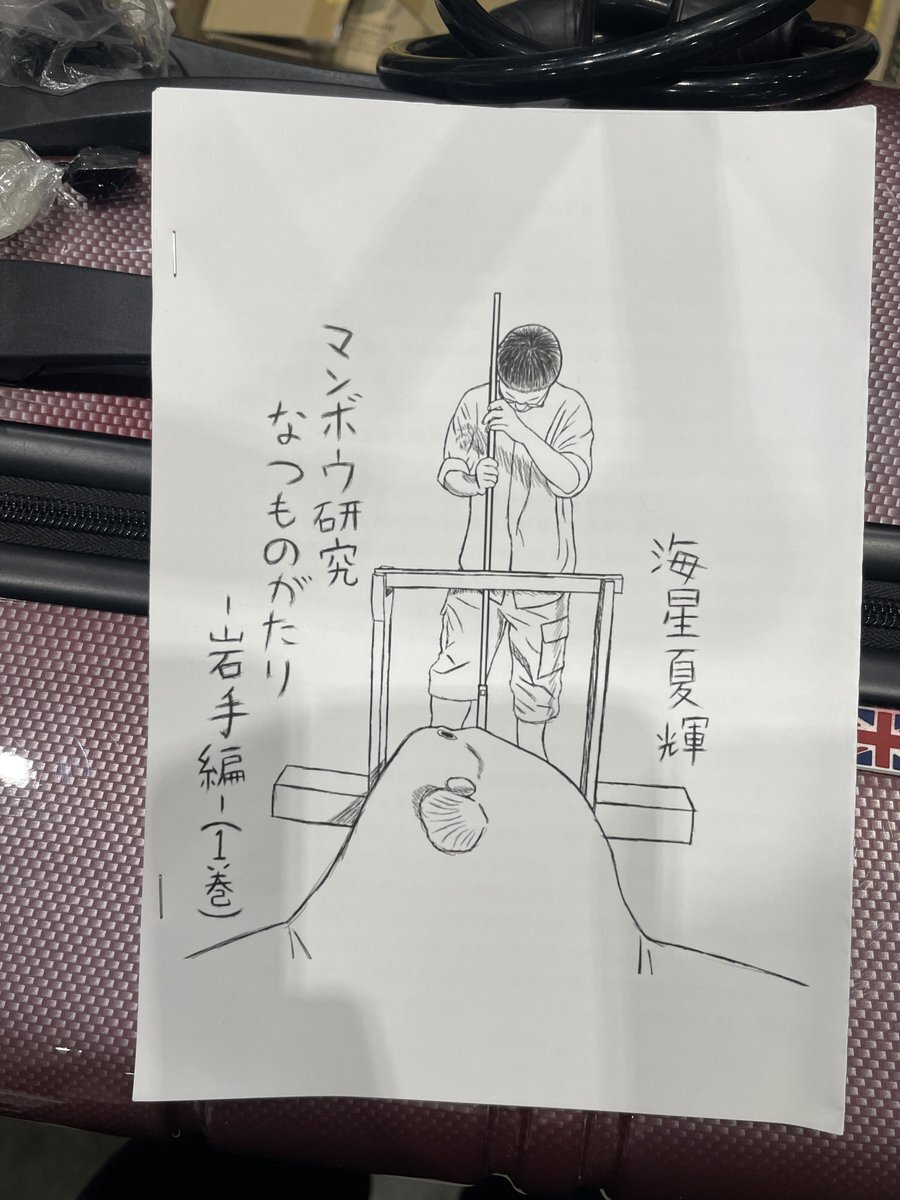 海星夏輝
マンボウ研究
なつものがたり
-岩手編-(1巻)